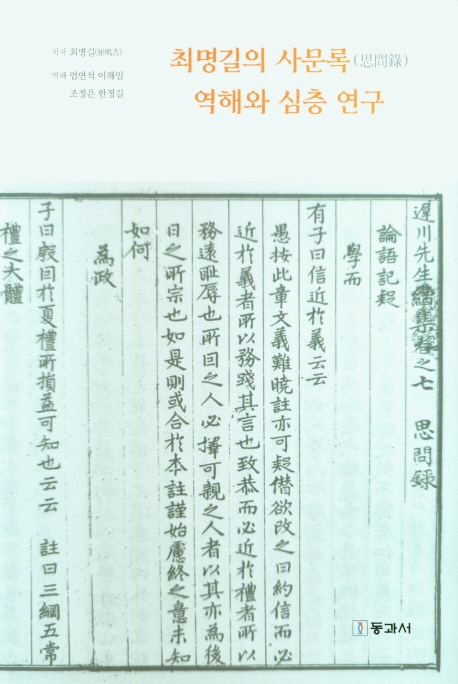 저자 최명길(崔鳴吉)
역해 엄연석 이해임
조정은 한정길
최명길의 사문록(思問錄)
역해와 심층 연구
遲川先生續集卷之七 思問錄
論語記疑
學而
有子曰信近於義云云
愚按此章文義難曉註亦可疑僣欲改之曰約信而必
近於義者所以務踐其言也致恭而必近於禮者所以
務遠耻辱也所因之人必擇可親之人者以其亦為後
日之所宗也如是則或合於本註謹始慮終之意未知
如何
為政
子曰殷因於夏禮所損益可知也云云 註曰三綱五常
禮之大體
동과서